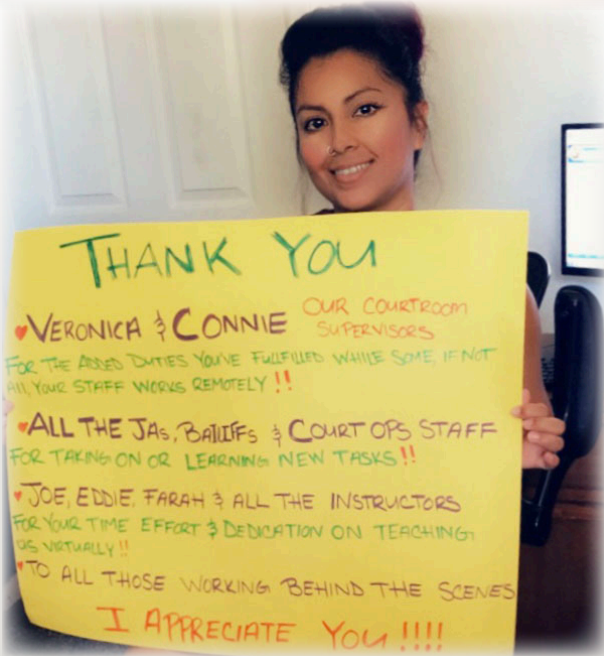 THANK YOU
♥VERONICA & CONNIE OUR COURTROOM SUPERVISORS
FOR THE ADDED DUTIES YOU'VE FULLFILLED WHILE SOME, IF NOT
All, YOUR STAFF WORKS REMOTELY!!
♥ALL THE JAs, BAILIFFs & COURT OPS STAFF
FOR TAKING ON OR LEARNING NEW TASKS!!
♥JOE, EDDIE, FARAH & ALL THE INSTRUCTORS
FOR YOUR TIME EFFORT & DEDICATION ON TEACHING
US VIRTUALLY!!
♥TO ALL THOSE WORKING BEHIND THE SCENES
I APPRECIATE YOU!!!!